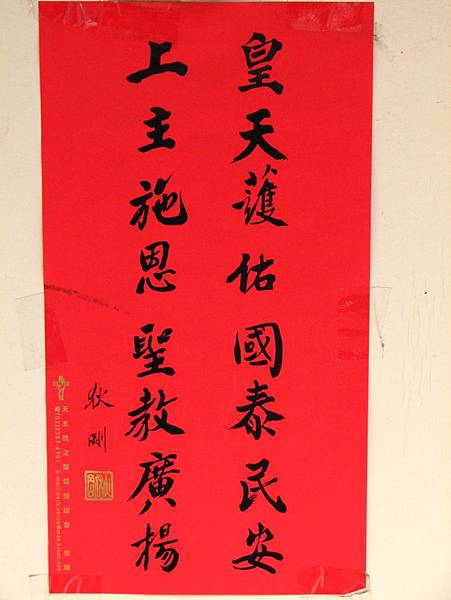 皇天護佑國泰民安
上主施恩聖教廣揚
狄剛
天主教之聲